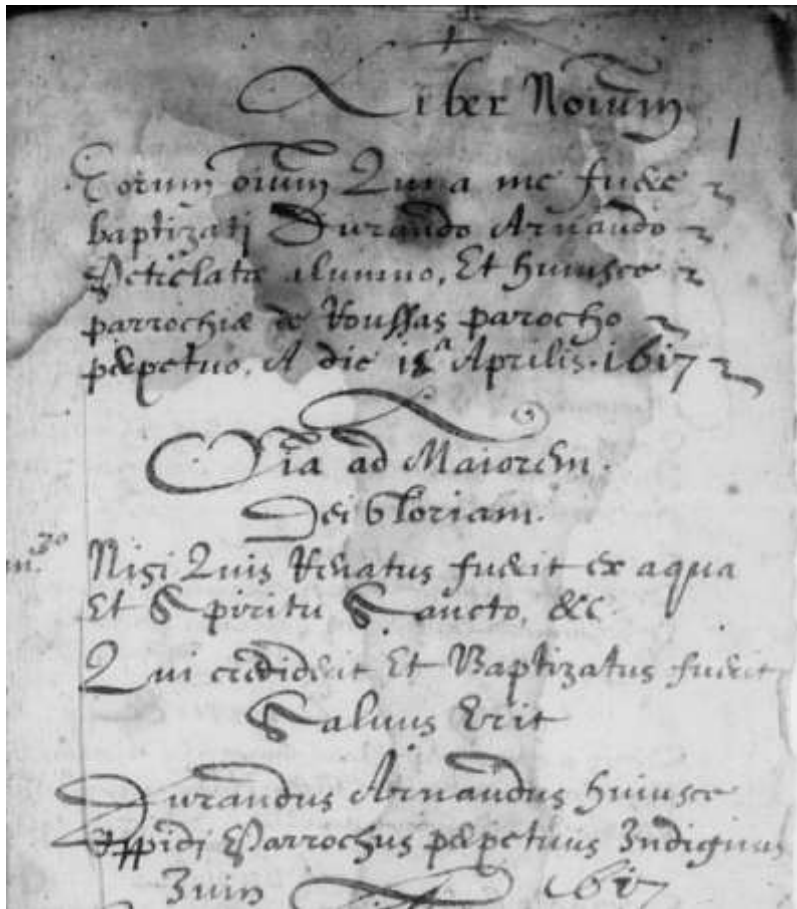 Liber Noium
1
Eorum oium Qui a me fuere
baptizati Durando Arnando
alumno, Et huiusce
parrochiæ de Roussas parocho
perpetuo, A die Aprilis. 1617
Oia ad Maiorem.
Dei Gloriam.
Nisi Quis Renatus fuerit ex aqua
Et Spiritu Sancto, &c.
Qui crediderit Et Baptizatus fuerit
Saluus Erit
Durandus Arnandus huiusce
Oppidi Parrochus perpetuus Indignus
1617